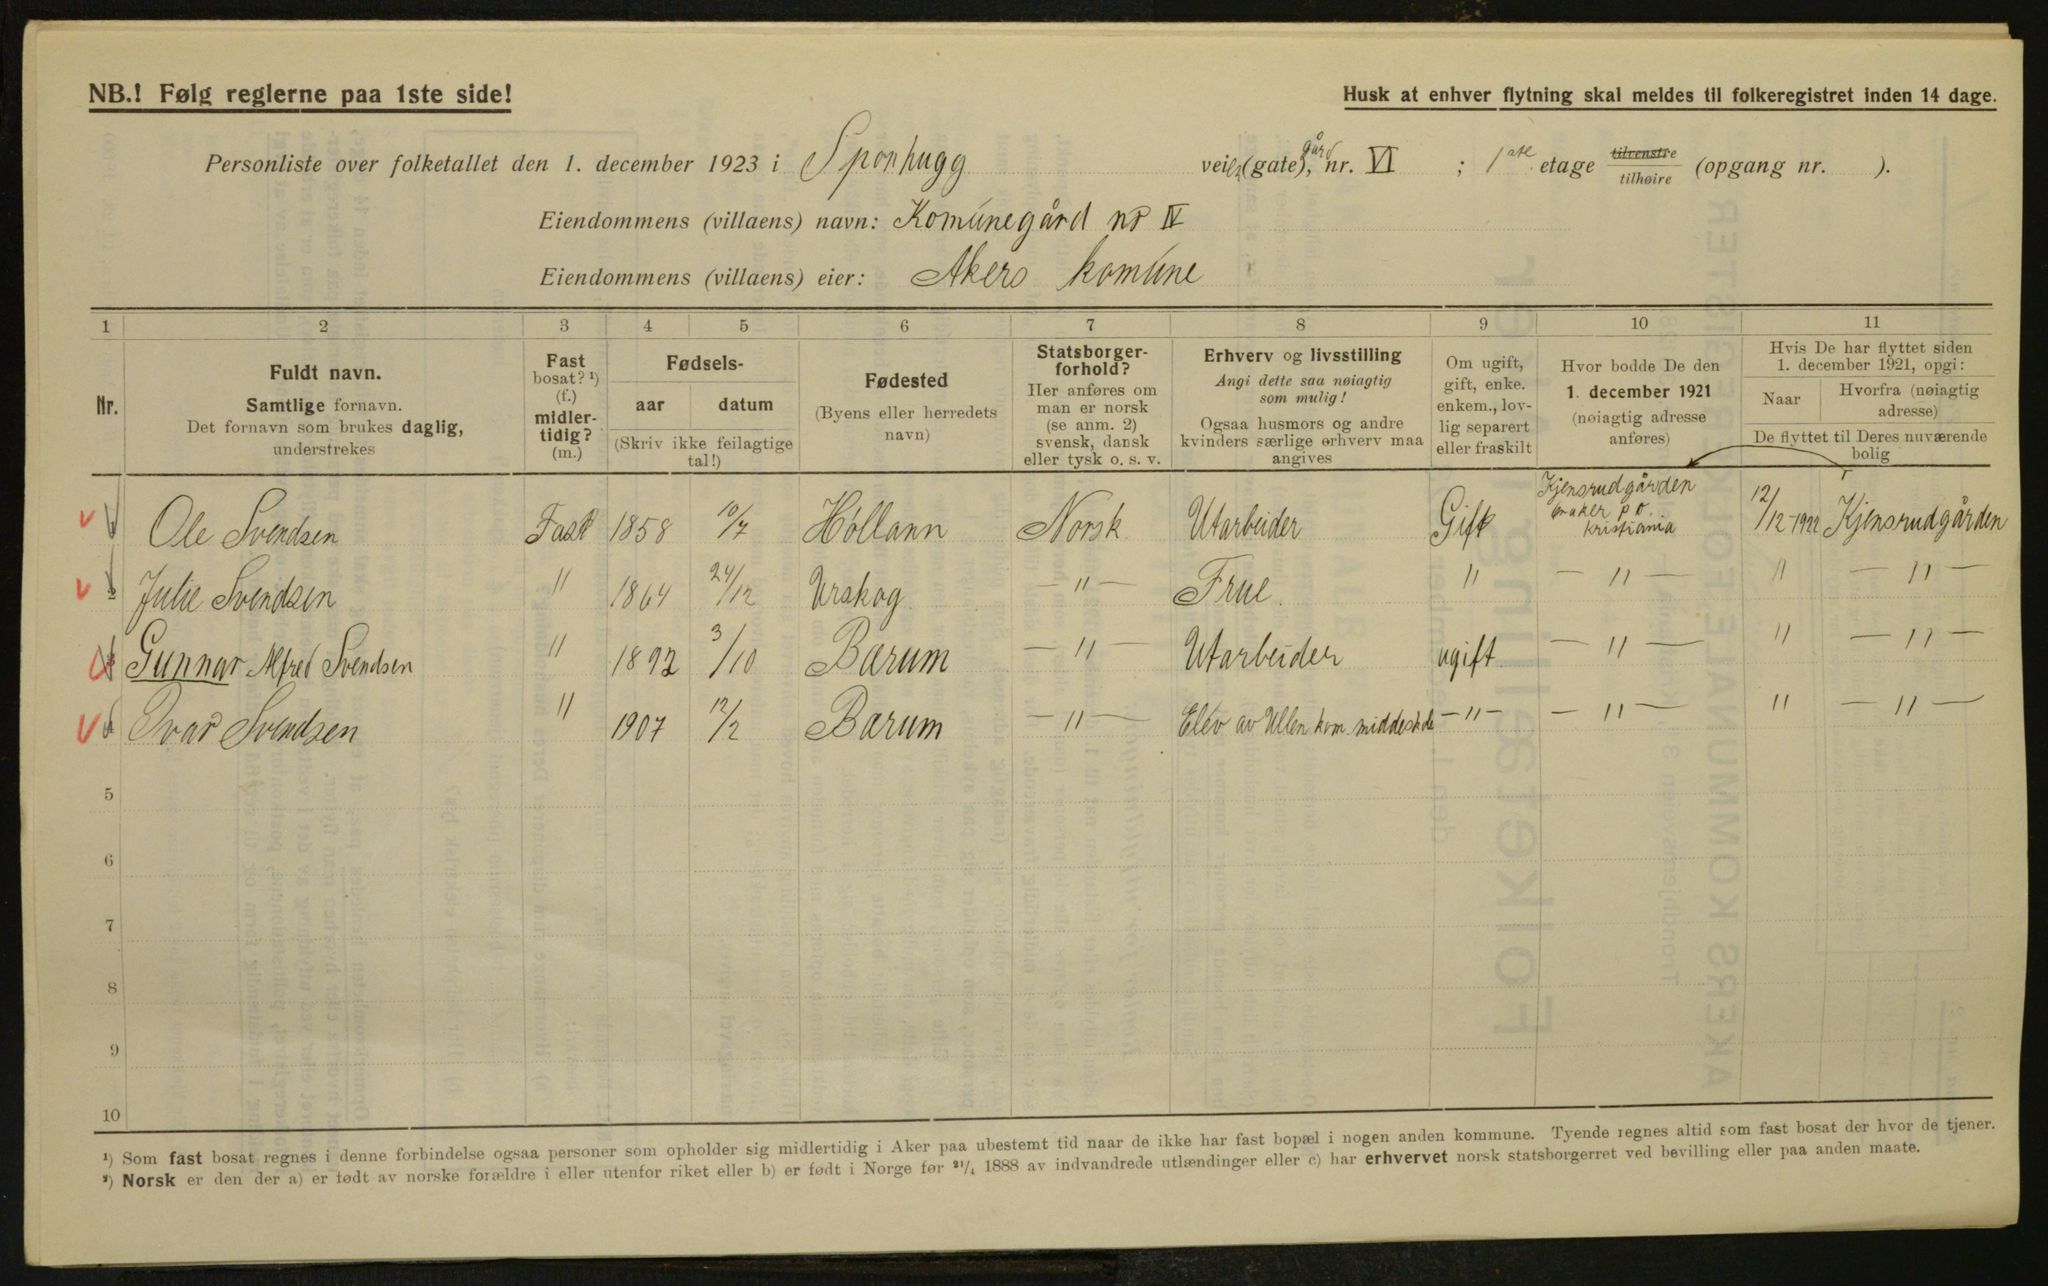 NB.! Følg reglerne paa 1ste side!
Husk at enhver flytning skal meldes til folkeregistret inden 14 dage.
Personliste over folketallet den 1. december 1923 i Sponhugg veien (gate), gård nr. VI ; 1ste etage tilvenstre tilhøire (opgang nr. ).
Eiendommens (villaens) navn: Komunegård nr IV
Eiendommens (villaens) eier: Akers komune
1 2 3 4 5 6 7 8 9 10 11
Nr.
Fuldt navn.
Samtlige fornavn.
Det fornavn som brukes daglig,
understrekes
Fast
bosat? ¹)
(f.)
midler-
tidig?
(m.)
Fødsels-
aar datum
(Skriv ikke feilagtige
tal!)
Fødested
(Byens eller herredets
navn)
Statsborger-
forhold?
Her anføres om
man er norsk
(se anm. 2)
svensk, dansk
eller tysk o. s. v.
Erhverv og livsstilling
Angi dette saa nøiagtig
som mulig!
Ogsaa husmors og andre
kvinders særlige erhverv maa
angives
Om ugift,
gift, enke.
enkem., lov-
lig separert
eller fraskilt
Hvor bodde De den
1. december 1921
(nøiagtig adresse
anføres)
Hvis De har flyttet siden
1. december 1921, opgi:
Naar Hvorfra (nøiagtig
adresse)
De flyttet til Deres nuværende
bolig
Ole Svendsen Fast 1858 10/7 Høllann Norsk Utarbeider Gift Kjensrudgården Braker p o. Kristiania 12/12-1922 Kjensrudgården
Julie Svendsen " 1864 24/12 Urskog — " — Frue " — " — " — " —
Gunnar Alfred Svendsen " 1892 3/10 Bærum — " — Utarbeider ugift — " — " — " —
Ivar Svendsen " 1907 12/2 Bærum — " — Elev av Ullen kom. middeskole — " — — " — " — " —
5
6
7
8
9
10
¹) Som fast bosat regnes i denne forbindelse ogsaa personer som opholder sig midlertidig i Aker paa ubestemt tid naar de ikke har fast bopæl i nogen anden kommune. Tyende regnes altid som fast bosat der hvor de tjener.
²) Norsk er den der a) er født av norske forældre i eller utenfor riket eller b) er født i Norge før 21/4 1888 av indvandrede utlændinger eller c) har erhvervet norsk statsborgerret ved bevilling eller paa anden maate.